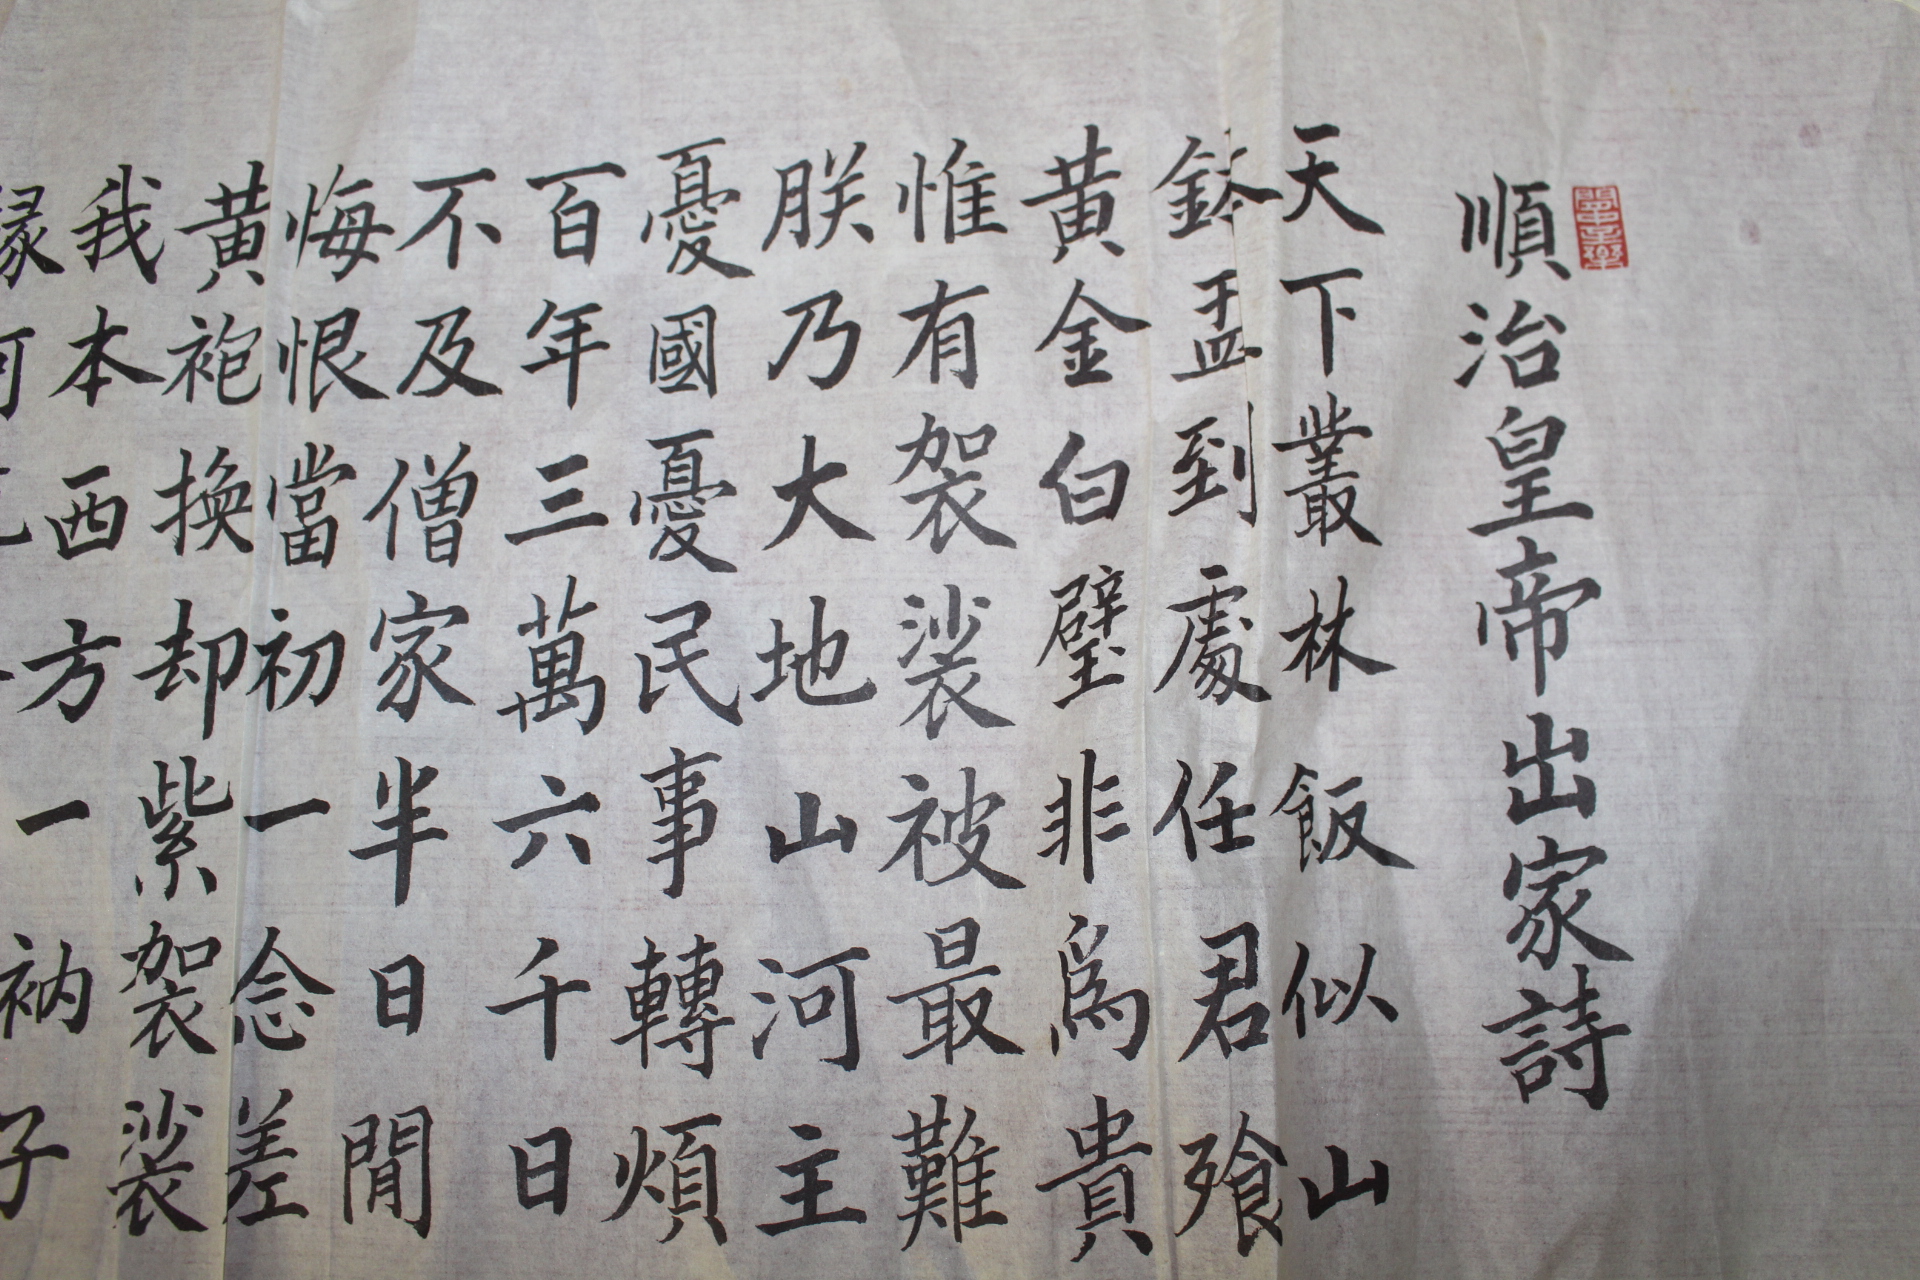 順治皇帝出家詩
天下叢林飯似山
鉢盂到處任君飱
黃金白璧非為貴
惟有袈裟被最難
朕乃大地山河主
憂國憂民事轉煩
百年三萬六千日
不及僧家半日閒
悔恨當初一念差
黃袍換却紫袈裟
我本西方一衲子
緣何